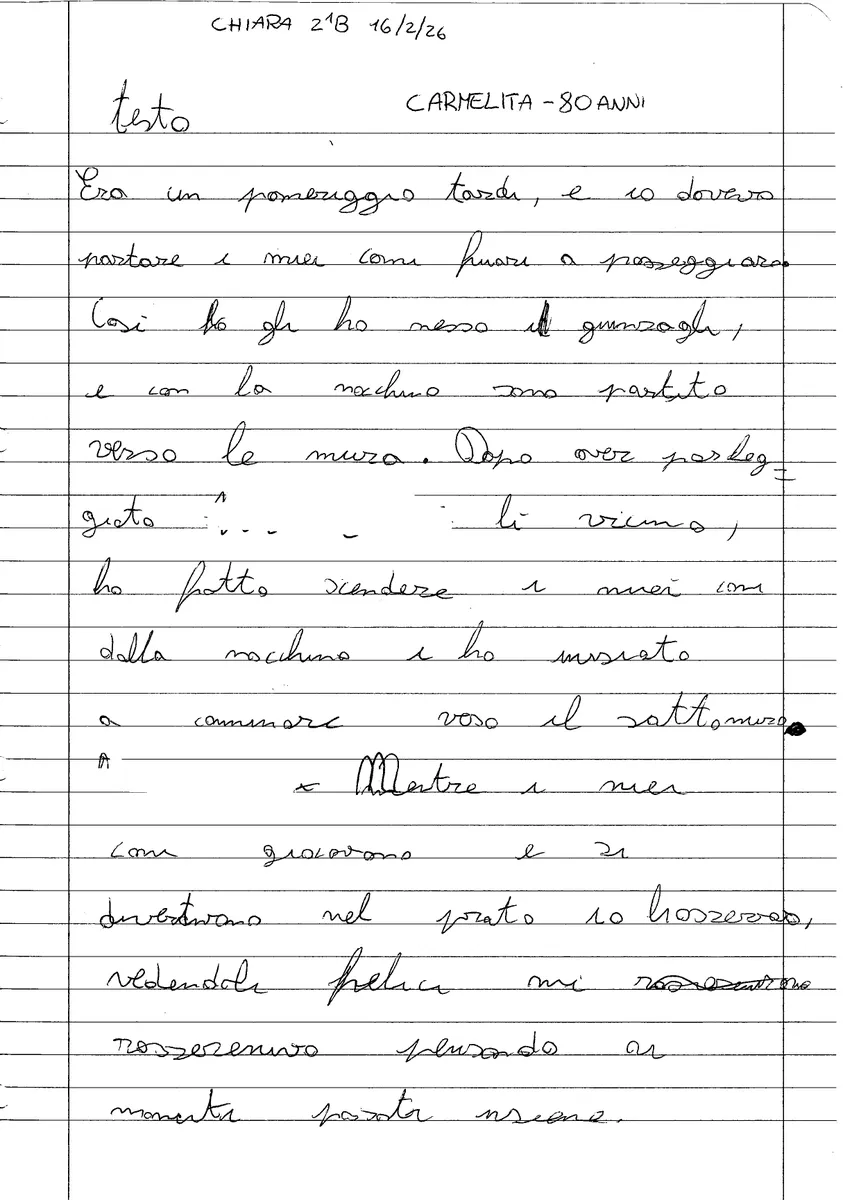 CHIARA 2^B 16/2/26
CARMELITA - 80 ANNI
testo
Era un pomeriggio tardi, e io dovevo
portare i miei cani fuori a passeggiare.
Così gli ho messo i guinzagli,
e con la macchina sono partito
verso le mura. Dopo aver parcheg=
giato li vicino,
ho fatto scendere i miei cani
dalla macchina i ho iniziato
a camminare verso il sottomura.
* Mentre i miei
cani giocavano e si
divertivano nel prato io
vedendoli felici mi
rasserenavo pensando ai
momenti passati insieme.